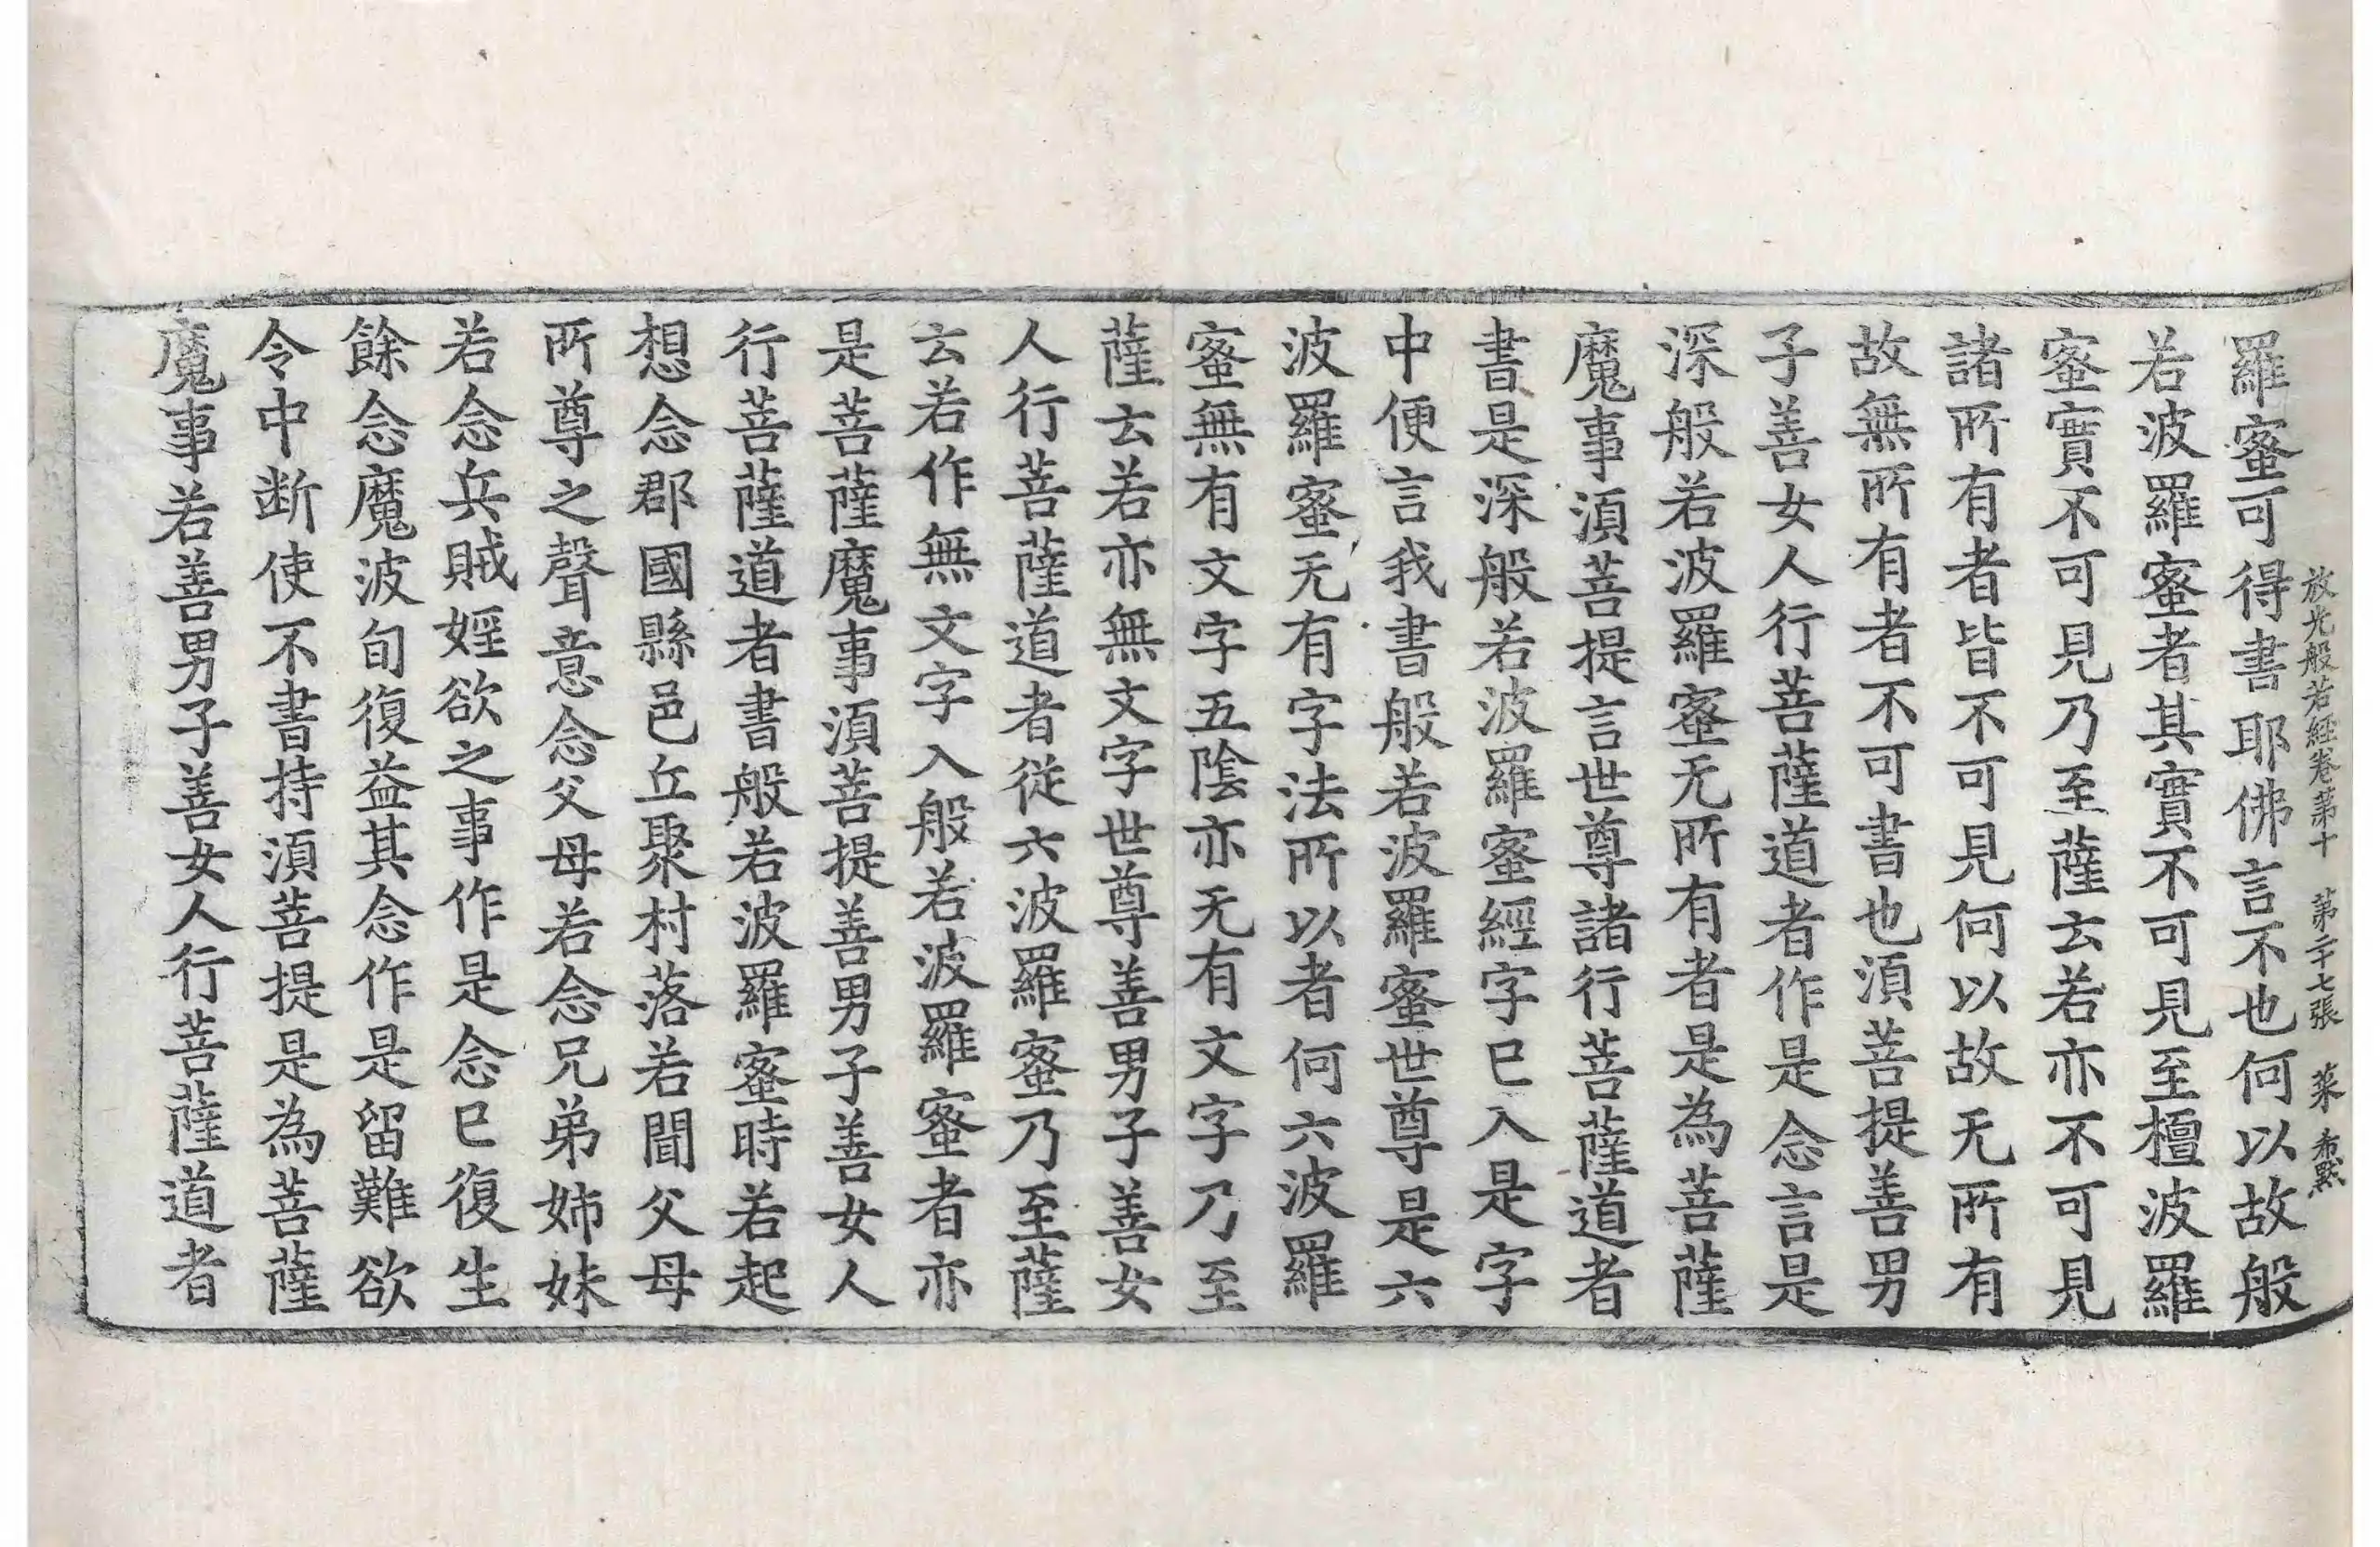 放光般若經卷第十　第二十七張　菜　布黙
羅蜜可得書耶佛言不也何以故般
若波羅蜜者其實不可見至檀波羅
蜜實不可見乃至薩云若亦不可見
諸所有者皆不可見何以故无所有
故無所有者不可書也湏菩提善男
子善女人行菩薩道者作是念言是
深般若波羅蜜无所有者是為菩薩
魔事湏菩提言世尊諸行菩薩道者
書是深般若波羅蜜經字已入是字
中便言我書般若波羅蜜世尊是六
波羅蜜无有字法所以者何六波羅
蜜無有文字五陰亦无有文字乃至
薩云若亦無文字世尊善男子善女
人行菩薩道者從六波羅蜜乃至薩
云若作無文字入般若波羅蜜者亦
是菩薩魔事湏菩提善男子善女人
行菩薩道者書般若波羅蜜時若起
想念郡國縣邑丘聚村落若聞父母
所尊之聲意念父母若念兄弟姉妹
若念兵賊婬欲之事作是念已復生
餘念魔波旬復益其念作是留難欲
令中断使不書持湏菩提是為菩薩
魔事若善男子善女人行菩薩道者